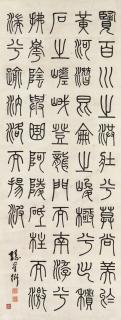 覽百川之弘壯兮莫尚美於
黃河潛昆侖之峻極兮出積
石之嵯峨登龍門而南游兮
拂華陰與曲阿凌砥柱而激
湍兮踰洛汭而揚波
孫星衍